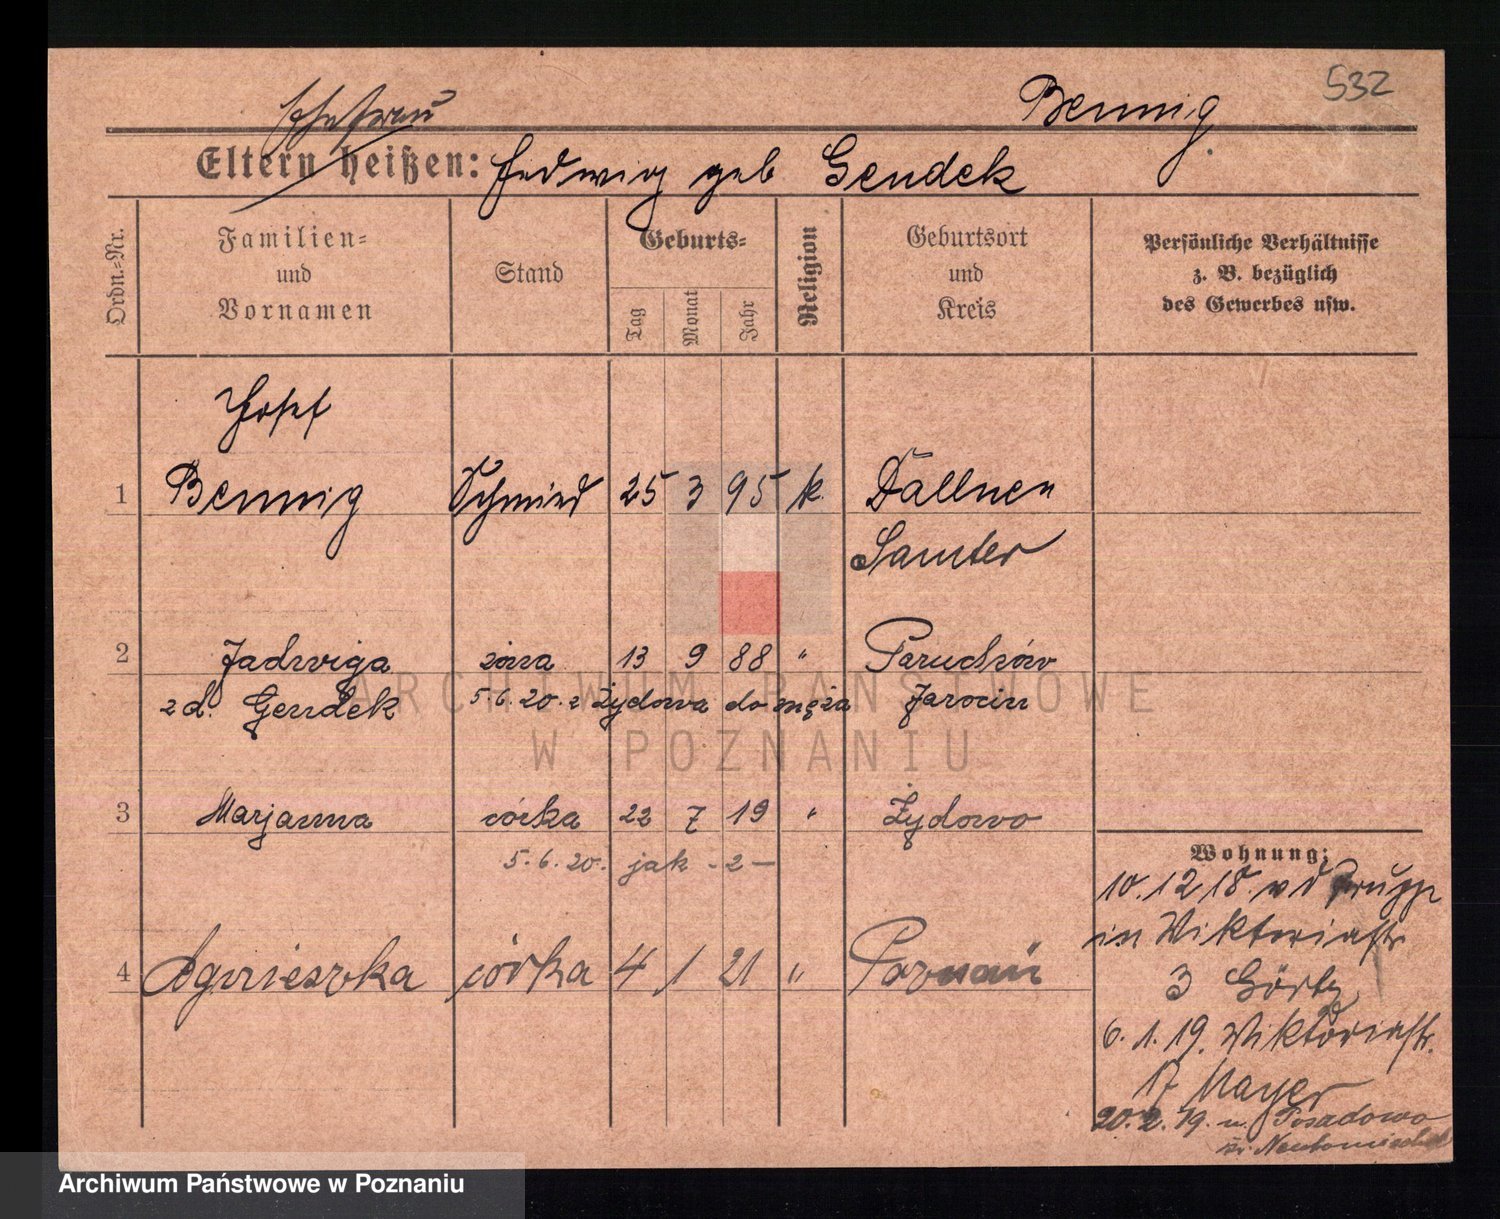 532
Ehefrau Bennig.
Eltern heißen: Hedwig geb Gendek
Ordn.=Nr.
Familien=
und
Vornamen
Stand
Geburts=
Tag
Monat
Jahr
Religion
Geburtsort
und
Kreis
Persönliche Verhältnisse
z. B. bezüglich
des Gewerbes usw.
Josef
1 Bennig Schmied 25 3 95 k. Dallnen
Samter
2 Jadwiga żona 13 9 88 " Paruchów
z d. Gendek 5.6.20. z Żydowa do męża Jarocin
3 Marjanna córka 22 7 19 " Żydowo
5.6.20. jak -2-
4 Agnieszka córka 4 1 21 " Poznań
Wohnung:
10.12 18. v d Truppe
in Viktoriastr
3 Görtz
6.1.19. Viktoriastr.
17 Mayer
20.2.19. n. Posadowo
Neutomischel
ARCHIWUM PAŃSTWOWE
W POZNANIU
Archiwum Państwowe w Poznaniu